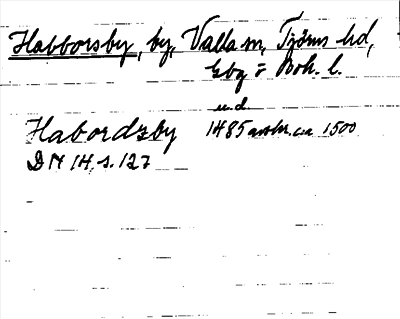 Habborsby, by, Valla sn, Tjörns hd,
Gbg o Boh. l.
u.d.
Habordzby 1485 avskr. ca 1500
DN 14, s. 127